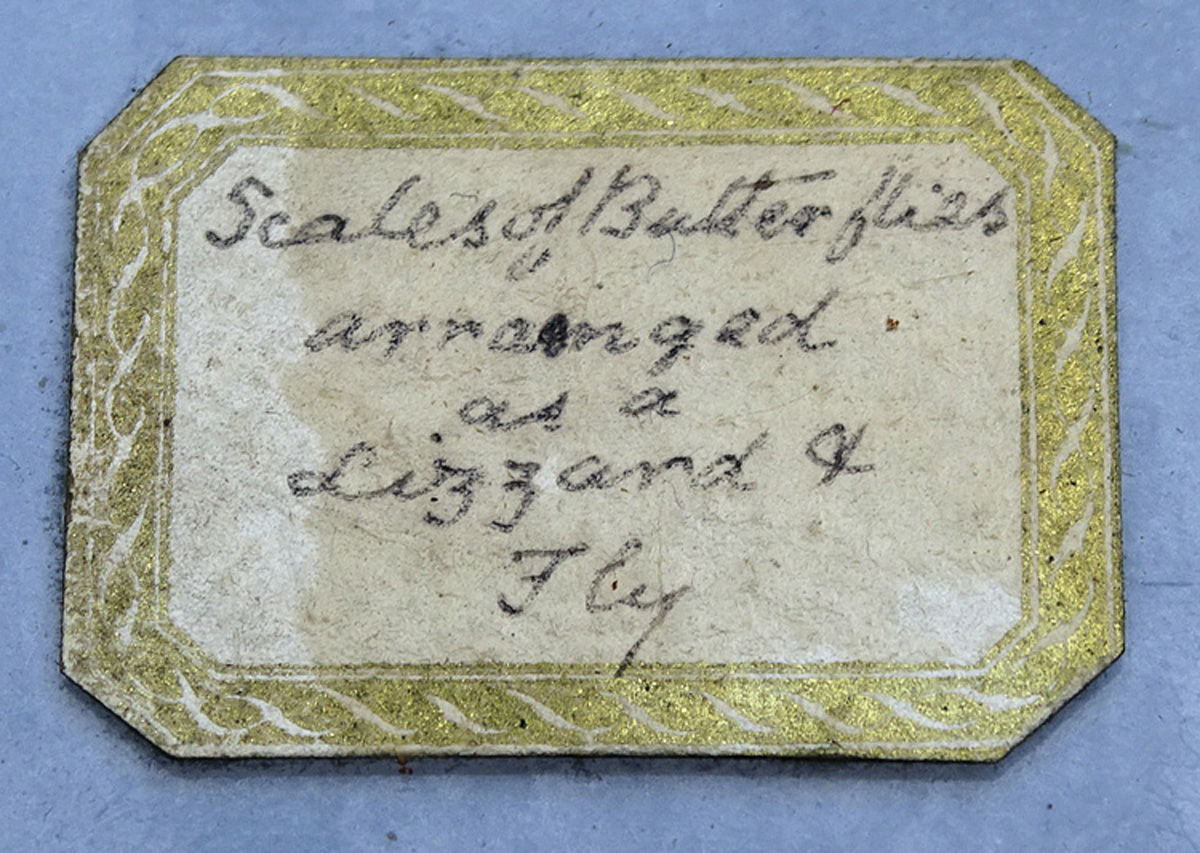 Scales of Butterflies
arranged
as a
Lizzard &
Fly